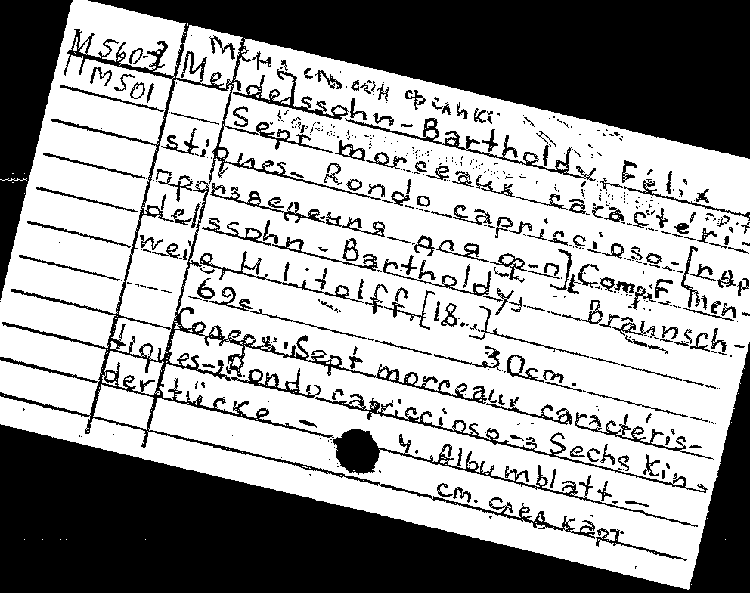 М 560-2
ПМ501
Мендельсон Феликс
Mendelssohn-Bartholdy, Félix
Sept morceaux caractéri-
stiques.- Rondo capriccioso.-[пер
произведения для ф-п]; Comp. F Men-
delssohn-Bartholdy,
Braunsch-
weig, H. Litolff, [18...].
69с. 30cm.
Содерж: Sept morceaux caractéris-
tiques-; Rondo capriccioso.-; Sechs Kin-
derstücke. - 4. Albumblatt. -
см. след карт